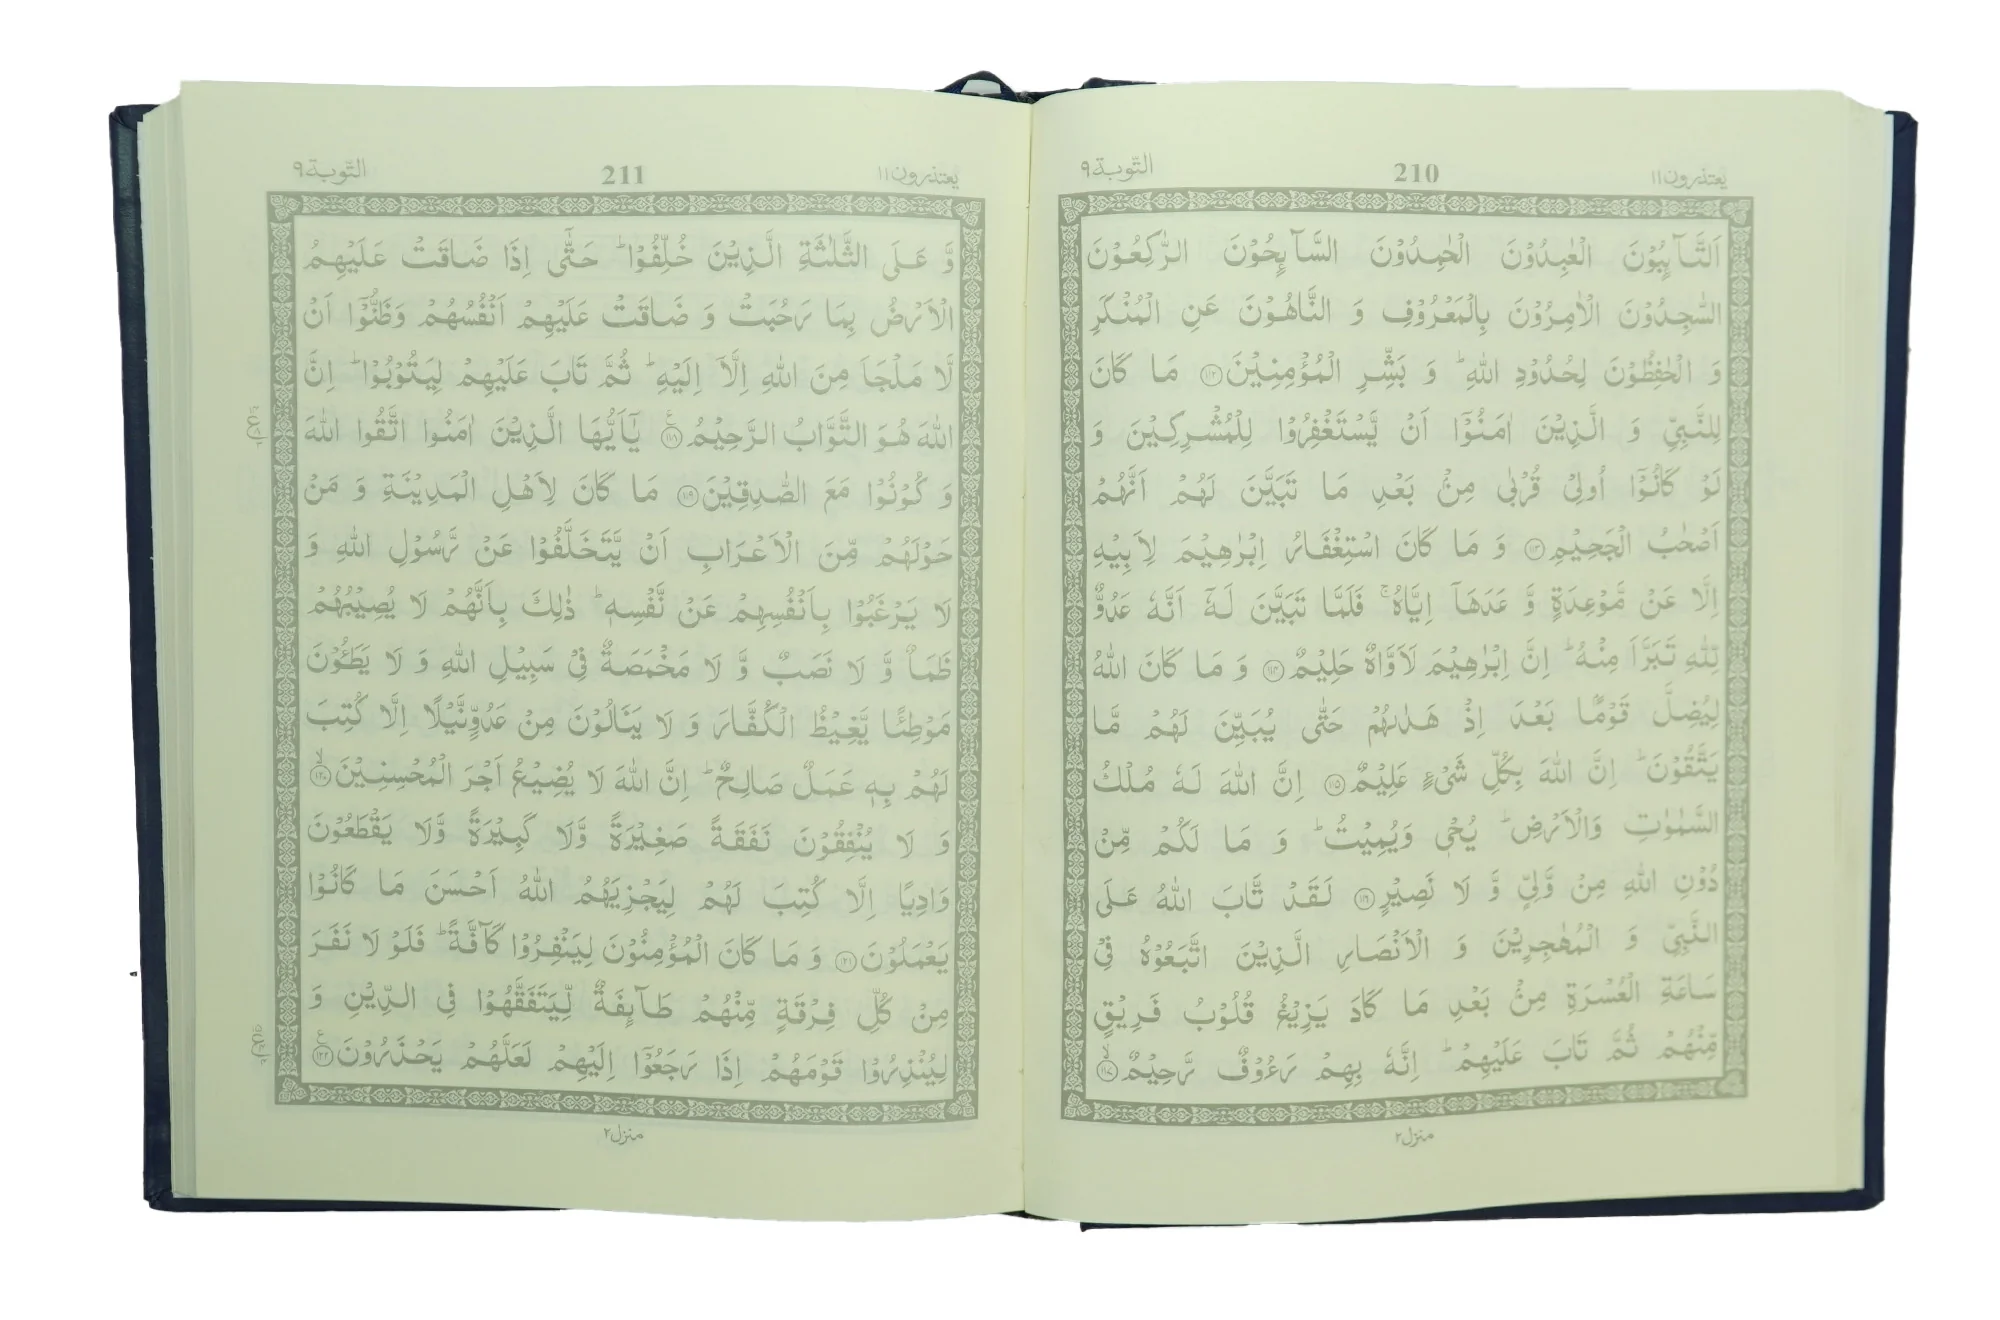 يعتذرون۱۱
210
التّوبة۹
اَلتَّآىِٕبُوْنَ الْعٰبِدُوْنَ الْحٰمِدُوْنَ السَّآىِٕحُوْنَ الرّٰكِعُوْنَ
السّٰجِدُوْنَ الْاٰمِرُوْنَ بِالْمَعْرُوْفِ وَ النَّاهُوْنَ عَنِ الْمُنْكَرِ
وَ الْحٰفِظُوْنَ لِحُدُوْدِ اللّٰهِؕ وَ بَشِّرِ الْمُؤْمِنِیْنَ۝۱۱۲ مَا كَانَ
لِلنَّبِیِّ وَ الَّذِیْنَ اٰمَنُوْۤا اَنْ یَّسْتَغْفِرُوْا لِلْمُشْرِكِیْنَ وَ
لَوْ كَانُوْۤا اُولِیْ قُرْبٰى مِنْۢ بَعْدِ مَا تَبَیَّنَ لَهُمْ اَنَّهُمْ
اَصْحٰبُ الْجَحِیْمِ۝۱۱۳ وَ مَا كَانَ اسْتِغْفَارُ اِبْرٰهِیْمَ لِاَبِیْهِ
اِلَّا عَنْ مَّوْعِدَةٍ وَّ عَدَهَاۤ اِیَّاهُۚ فَلَمَّا تَبَیَّنَ لَهٗۤ اَنَّهٗ عَدُوٌّ
لِّلّٰهِ تَبَرَّاَ مِنْهُؕ اِنَّ اِبْرٰهِیْمَ لَاَوَّاهٌ حَلِیْمٌ۝۱۱۴ وَ مَا كَانَ اللّٰهُ
لِیُضِلَّ قَوْمًۢا بَعْدَ اِذْ هَدٰىهُمْ حَتّٰى یُبَیِّنَ لَهُمْ مَّا
یَتَّقُوْنَؕ اِنَّ اللّٰهَ بِكُلِّ شَیْءٍ عَلِیْمٌ۝۱۱۵ اِنَّ اللّٰهَ لَهٗ مُلْكُ
السَّمٰوٰتِ وَالْاَرْضِؕ یُحْیٖ وَیُمِیْتُؕ وَ مَا لَكُمْ مِّنْ
دُوْنِ اللّٰهِ مِنْ وَّلِیٍّ وَّ لَا نَصِیْرٍ۝۱۱۶ لَقَدْ تَّابَ اللّٰهُ عَلَى
النَّبِیِّ وَ الْمُهٰجِرِیْنَ وَ الْاَنْصَارِ الَّذِیْنَ اتَّبَعُوْهُ فِیْ
سَاعَةِ الْعُسْرَةِ مِنْۢ بَعْدِ مَا كَادَ یَزِیْغُ قُلُوْبُ فَرِیْقٍ
مِّنْهُمْ ثُمَّ تَابَ عَلَیْهِمْؕ اِنَّهٗ بِهِمْ رَءُوْفٌ رَّحِیْمٌۙ۝۱۱۷
منزل۲
يعتذرون۱۱
211
التّوبة۹
وَّ عَلَى الثَّلٰثَةِ الَّذِیْنَ خُلِّفُوْاؕ حَتّٰۤى اِذَا ضَاقَتْ عَلَیْهِمُ
الْاَرْضُ بِمَا رَحُبَتْ وَ ضَاقَتْ عَلَیْهِمْ اَنْفُسُهُمْ وَظَنُّوْۤا اَنْ
لَّا مَلْجَاَ مِنَ اللّٰهِ اِلَّاۤ اِلَیْهِؕ ثُمَّ تَابَ عَلَیْهِمْ لِیَتُوْبُوْاؕ اِنَّ
اللّٰهَ هُوَ التَّوَّابُ الرَّحِیْمُ۝۱۱۸ یٰۤاَیُّهَا الَّذِیْنَ اٰمَنُوا اتَّقُوا اللّٰهَ
وَ كُوْنُوْا مَعَ الصّٰدِقِیْنَ۝۱۱۹ مَا كَانَ لِاَهْلِ الْمَدِیْنَةِ وَ مَنْ
حَوْلَهُمْ مِّنَ الْاَعْرَابِ اَنْ یَّتَخَلَّفُوْا عَنْ رَّسُوْلِ اللّٰهِ وَ
لَا یَرْغَبُوْا بِاَنْفُسِهِمْ عَنْ نَّفْسِهٖؕ ذٰلِكَ بِاَنَّهُمْ لَا یُصِیْبُهُمْ
ظَمَاٌ وَّ لَا نَصَبٌ وَّ لَا مَخْمَصَةٌ فِیْ سَبِیْلِ اللّٰهِ وَ لَا یَطَـُٔوْنَ
مَوْطِئًا یَّغِیْظُ الْكُفَّارَ وَ لَا یَنَالُوْنَ مِنْ عَدُوٍّنَّیْلًا اِلَّا كُتِبَ
لَهُمْ بِهٖ عَمَلٌ صَالِحٌؕ اِنَّ اللّٰهَ لَا یُضِیْعُ اَجْرَ الْمُحْسِنِیْنَۙ۝۱۲۰
وَ لَا یُنْفِقُوْنَ نَفَقَةً صَغِیْرَةً وَّلَا كَبِیْرَةً وَّلَا یَقْطَعُوْنَ
وَادِیًا اِلَّا كُتِبَ لَهُمْ لِیَجْزِیَهُمُ اللّٰهُ اَحْسَنَ مَا كَانُوْا
یَعْمَلُوْنَ۝۱۲۱ وَ مَا كَانَ الْمُؤْمِنُوْنَ لِیَنْفِرُوْا كَآفَّةًؕ فَلَوْ لَا نَفَرَ
مِنْ كُلِّ فِرْقَةٍ مِّنْهُمْ طَآىِٕفَةٌ لِّیَتَفَقَّهُوْا فِی الدِّیْنِ وَ
لِیُنْذِرُوْا قَوْمَهُمْ اِذَا رَجَعُوْۤا اِلَیْهِمْ لَعَلَّهُمْ یَحْذَرُوْنَ۝۱۲۲
منزل۲